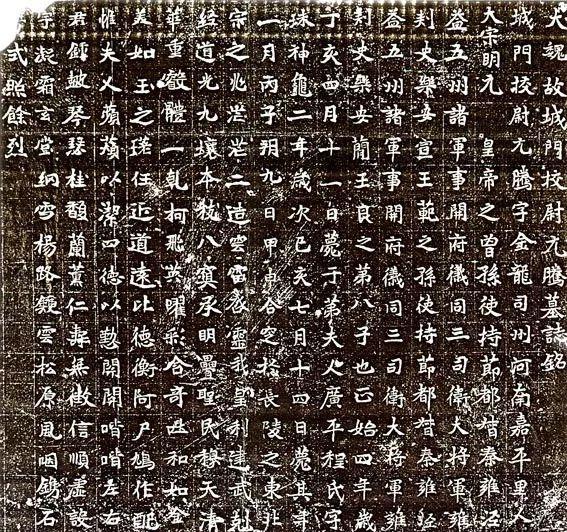 大魏故城門校尉元騰墓誌銘
城門校尉元騰字金龍司州河南嘉平里人
大宗明元皇帝之曾孫使持節都督秦雍涇
益五州諸軍事開府儀同三司衛大將軍雍
刾史樂安宣王範之孫使持節都督秦雍涇
益五州諸軍事開府儀同三司衛大將軍雍
刾史樂安簡王良之第八子也正始四年歲
丁亥四月十一日薨于第夫人廣平程氏字
珠神龜二年歲次己亥七月十四日薨其年
一月丙子朔九日甲申合窆於長陵之東北
宗之兆茫茫二造雲雷啓靈我皇利建武剋
道光九壤本枝八冥承明疊聖民穆天清
華重體一乾柯飛英曜彩合奇和如金
美如玉之瑳任近道遠比德衡阿尸鳩作配
惟夫人蘋蘩以潔四德以懃閨喈喈左右
君鍾鼓琴瑟桂馥蘭薰仁壽無徵信順虛設
宇凝霜玄堂納雪楊路鍾雲松原風咽鐫石
式照餘烈